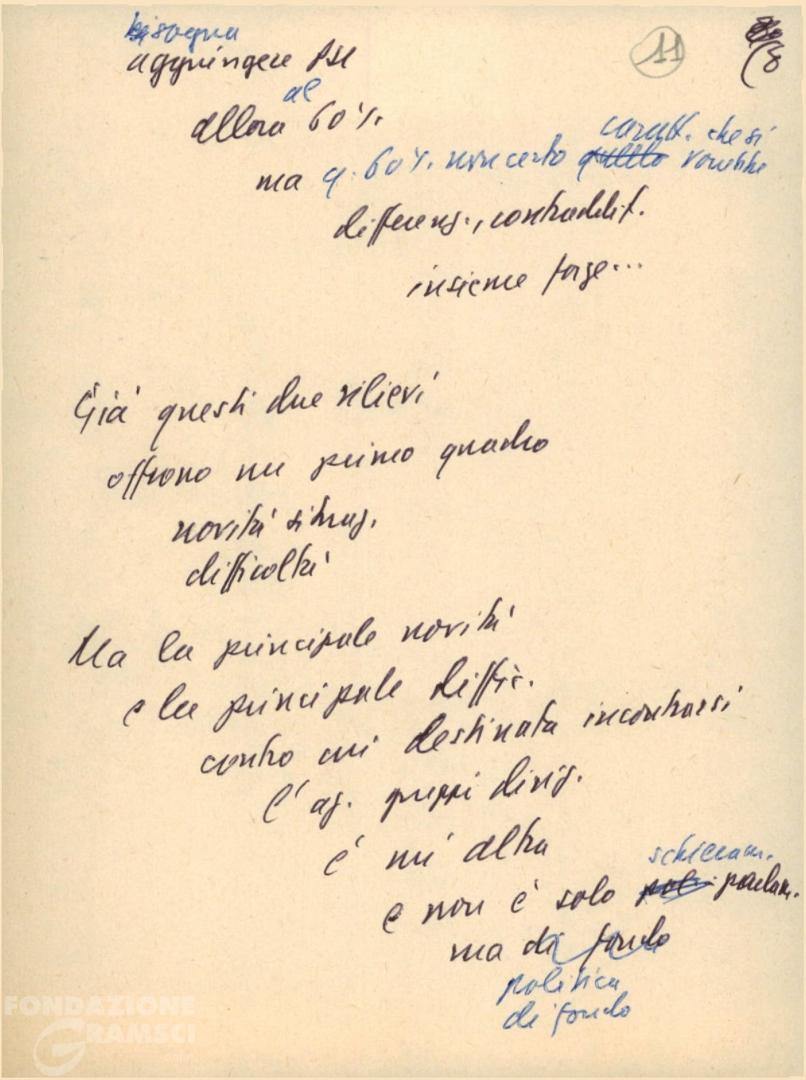 bisogna
11
aggiungere PSI
al
allora 60%
caratt. che si
ma q. 60% non certo quello vorrebbe
differenz., contraddit.
insieme forze...
Già questi due rilievi
offrono un primo quadro
novità situaz.
difficoltà
Ma la principale novità
e la principale diffic.
contro cui destinata incontrarsi
l'az. gruppi dirig.
è un'altra
schieram.
e non è solo parlam.
ma di fondo
politica
di fondo
FONDAZIONE
GRAMSCI